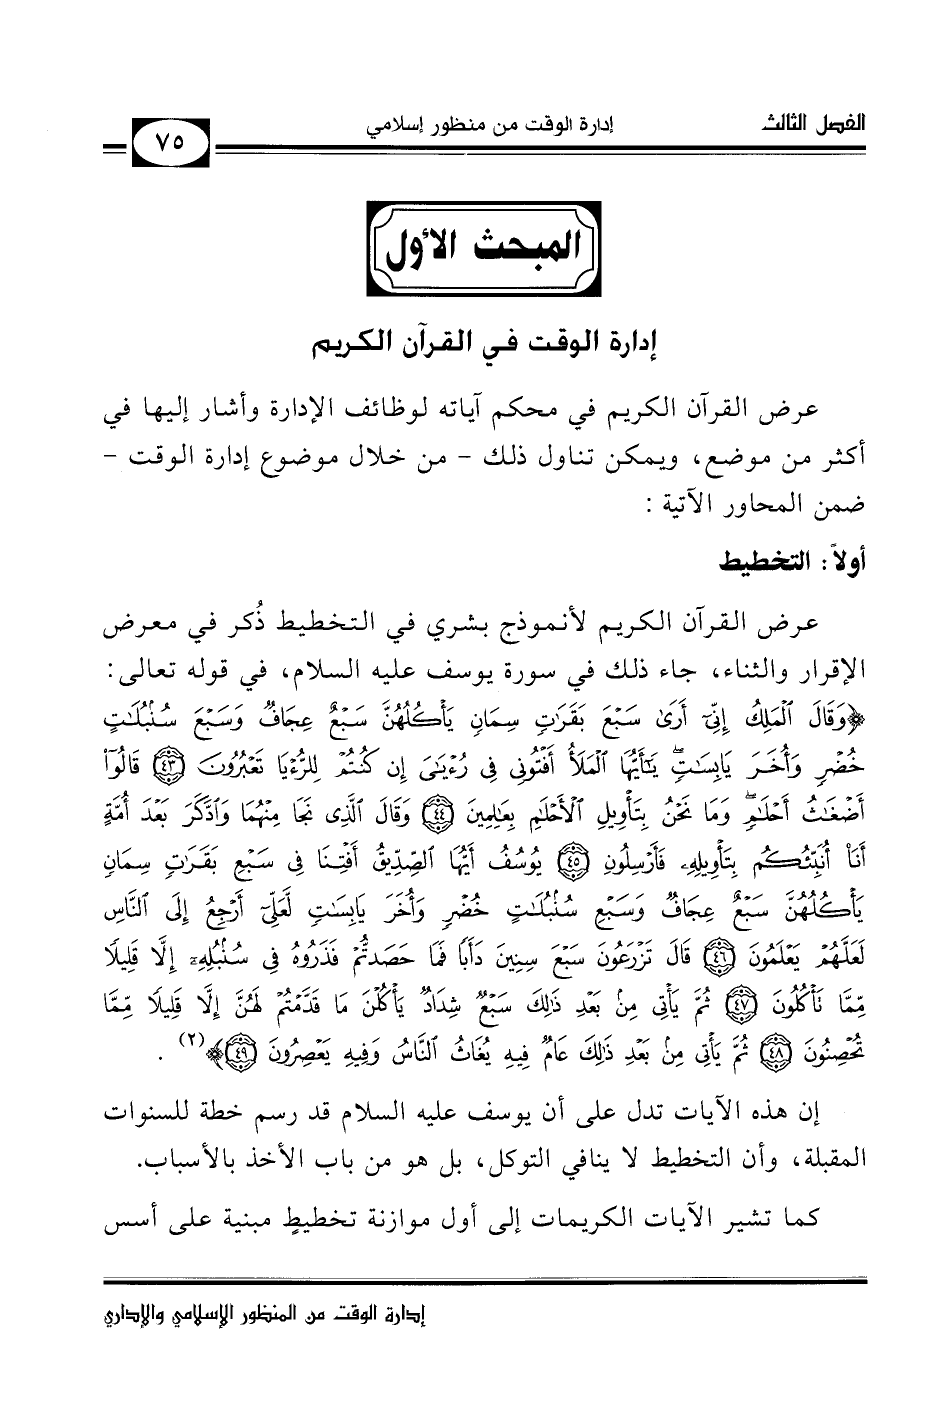 الفصل الثالث
إدارة الوقت من منظور إسلامي
٧٥
المبحث الأول
إدارة الوقت في القرآن الكريم
عرض القرآن الكريم في محكم آياته لوظائف الإدارة وأشار إليها في
أكثر من موضع، ويمكن تناول ذلك - من خلال موضوع إدارة الوقت -
ضمن المحاور الآتية :
أولاً : التخطيط
عرض القرآن الكريم لأنموذج بشري في التخطيط ذُكر في معرض
الإقرار والثناء، جاء ذلك في سورة يوسف عليه السلام، في قوله تعالى:
﴿وَقَالَ ٱلْمَلِكُ إِنِّىٓ أَرَىٰ سَبْعَ بَقَرَٰتٍ سِمَانٍ يَأْكُلُهُنَّ سَبْعٌ عِجَافٌ وَسَبْعَ سُنۢبُلَٰتٍ
خُضْرٍ وَأُخَرَ يَابِسَٰتٍ ۖ يَٰٓأَيُّهَا ٱلْمَلَأُ أَفْتُونِى فِى رُءْيَٰىَ إِن كُنتُمْ لِلرُّءْيَا تَعْبُرُونَ ٤٣ قَالُوٓا۟
أَضْغَٰثُ أَحْلَٰمٍ ۖ وَمَا نَحْنُ بِتَأْوِيلِ ٱلْأَحْلَٰمِ بِعَٰلِمِينَ ٤٤ وَقَالَ ٱلَّذِى نَجَا مِنْهُمَا وَٱدَّكَرَ بَعْدَ أُمَّةٍ
أَنَا۠ أُنَبِّئُكُم بِتَأْوِيلِهِۦ فَأَرْسِلُونِ ٤٥ يُوسُفُ أَيُّهَا ٱلصِّدِّيقُ أَفْتِنَا فِى سَبْعِ بَقَرَٰتٍ سِمَانٍ
يَأْكُلُهُنَّ سَبْعٌ عِجَافٌ وَسَبْعِ سُنۢبُلَٰتٍ خُضْرٍ وَأُخَرَ يَابِسَٰتٍ لَّعَلِّىٓ أَرْجِعُ إِلَى ٱلنَّاسِ
لَعَلَّهُمْ يَعْلَمُونَ ٤٦ قَالَ تَزْرَعُونَ سَبْعَ سِنِينَ دَأَبًا فَمَا حَصَدتُّمْ فَذَرُوهُ فِى سُنۢبُلِهِۦٓ إِلَّا قَلِيلًا
مِّمَّا تَأْكُلُونَ ٤٧ ثُمَّ يَأْتِى مِنۢ بَعْدِ ذَٰلِكَ سَبْعٌ شِدَادٌ يَأْكُلْنَ مَا قَدَّمْتُمْ لَهُنَّ إِلَّا قَلِيلًا مِّمَّا
تُحْصِنُونَ ٤٨ ثُمَّ يَأْتِى مِنۢ بَعْدِ ذَٰلِكَ عَامٌ فِيهِ يُغَاثُ ٱلنَّاسُ وَفِيهِ يَعْصِرُونَ ٤٩﴾(٢) .
إن هذه الآيات تدل على أن يوسف عليه السلام قد رسم خطة للسنوات
المقبلة، وأن التخطيط لا ينافي التوكل، بل هو من باب الأخذ بالأسباب.
كما تشير الآيات الكريمات إلى أول موازنة تخطيطٍ مبنية على أسس
إدارة الوقت من المنظور الإسلامي والإداري